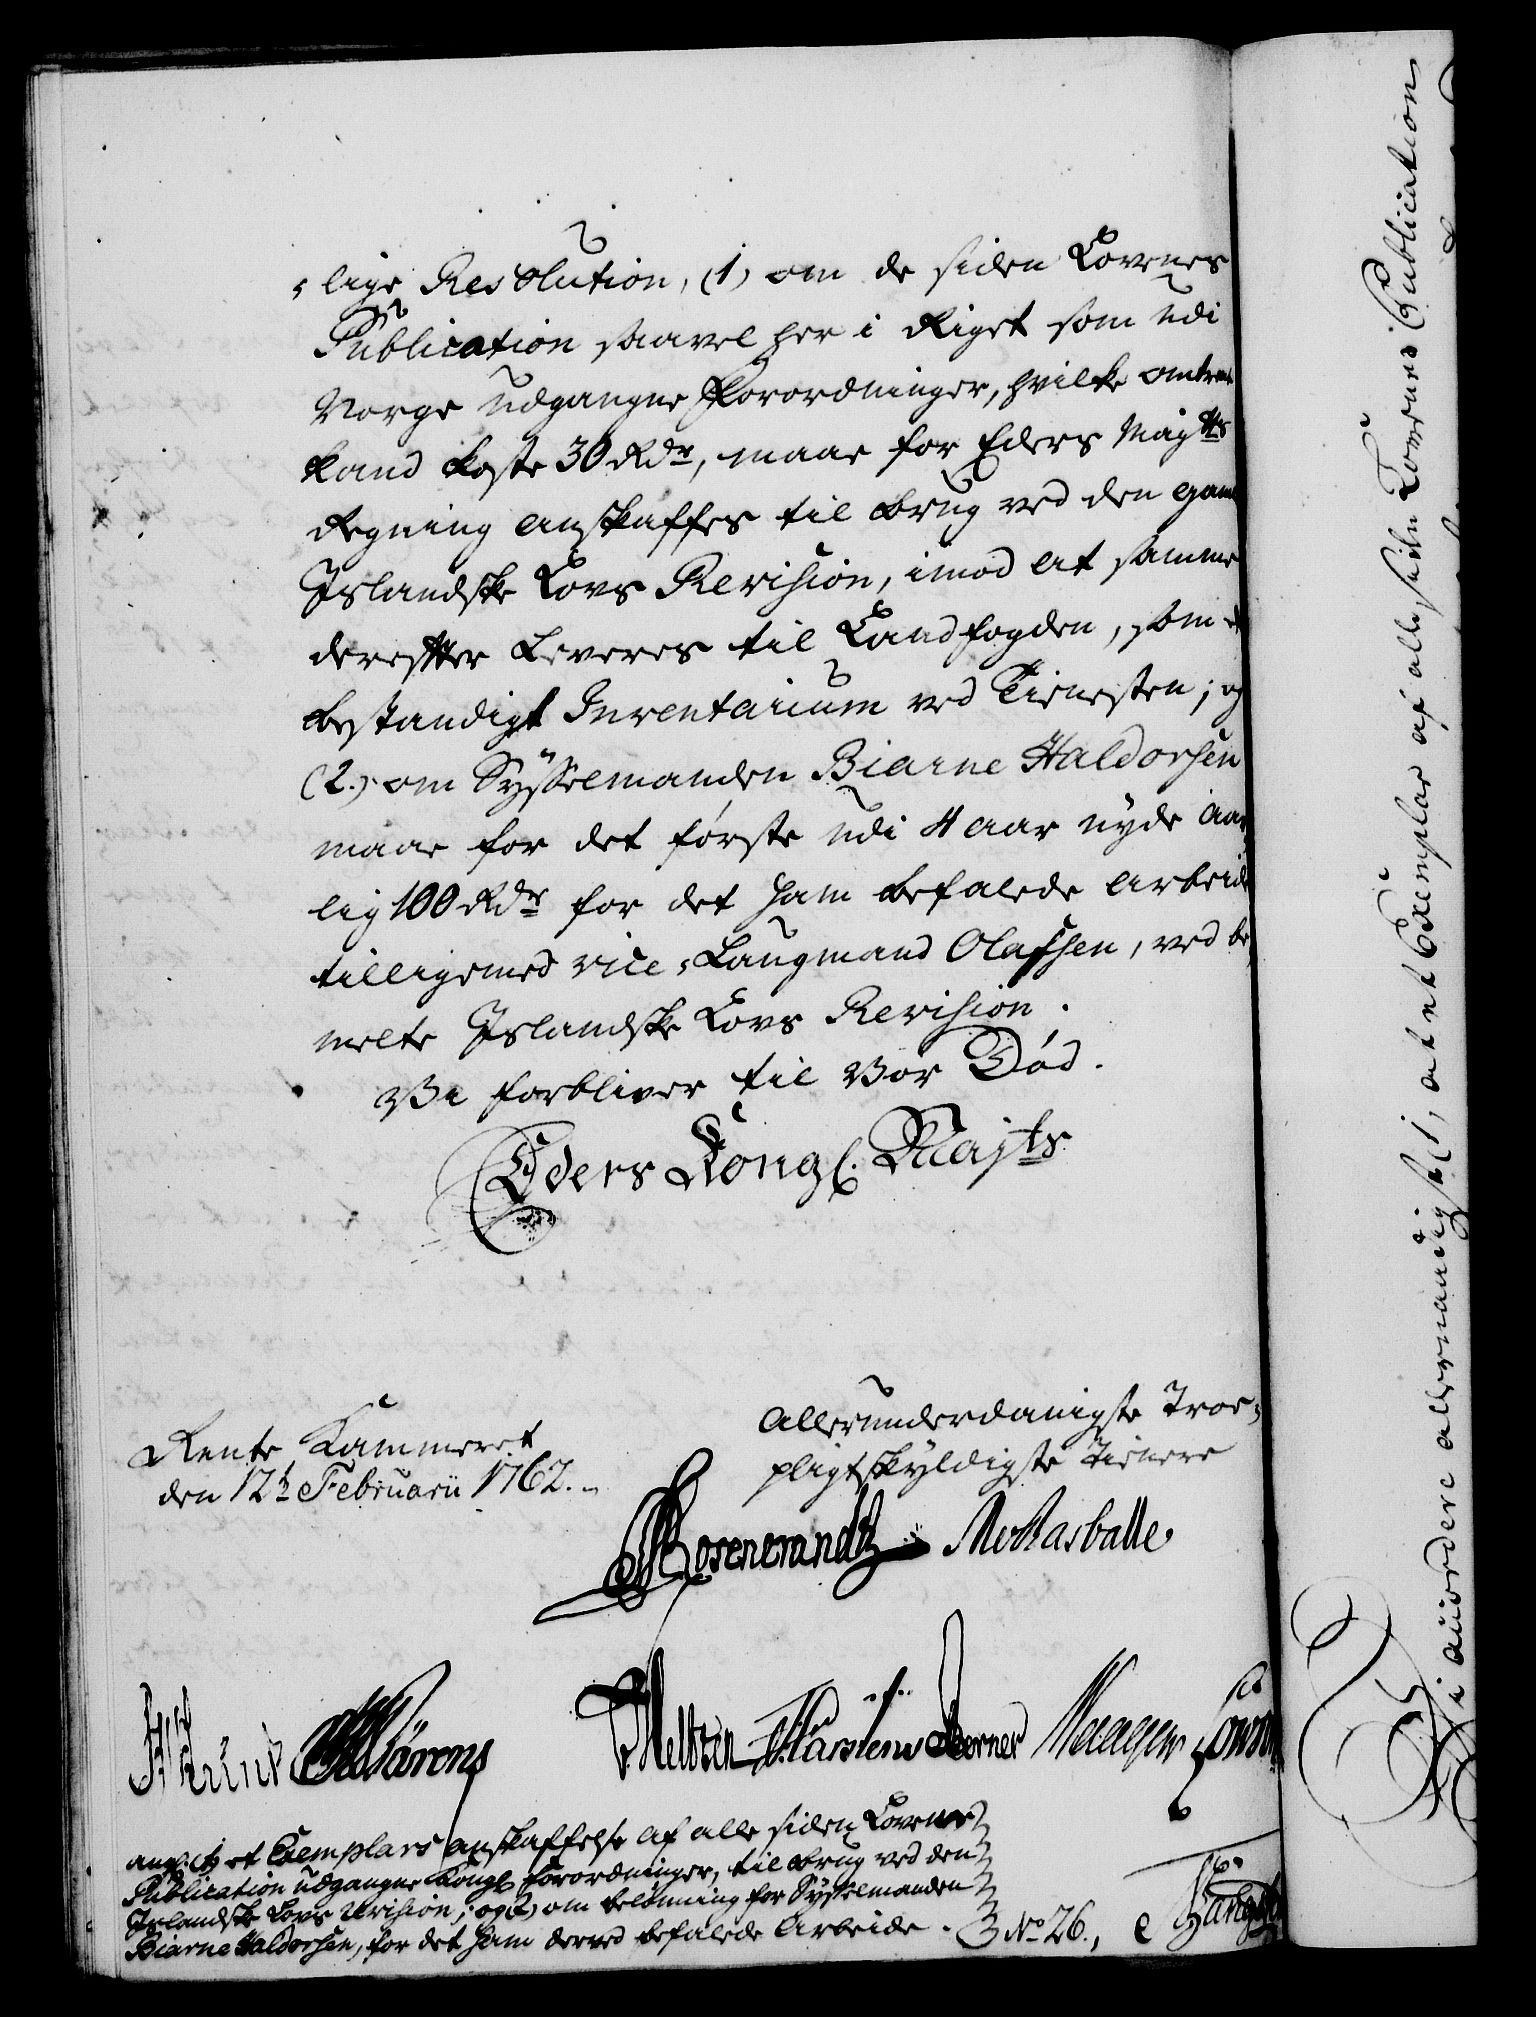 -lige Resolution, (1) om de siden Lovenes
Publication saavel her i Riget som udi
Norge udgangne Forordninger, hvilke omtrent
kand koste 30 Rdr, maae for Eders Mayts
Regning anskaffes til brug ved den gamle
Islandske Lovs Revision, imod at samme
derefter leveres til Landfogden, som et
bestandigt Inventarium ved Tienesten; og
(2.) om Sysselmanden Biarne Haldorsen
maae for det første udi 4 aar nyde aar-
lig 100 Rdr for det ham befalede Arbeide
tilligemed vice-Laugmand Olafsen, ved be-
melte Islandske Lovs Revision.
Vi forbliver til Vor Død.
Eders Kongl. Mayts
Rente Kammeret
den 12t Februarii 1762.
allerunderdanigste Troe-
pligtskyldigste Tienere
Rosencrandtz
Schiørens Meltzen Karstens Berner
ang: (1) et Exemplars anskaffelse af alle siden Lovenes
Publication udgangne Kongl Forordninger, til brug ved den
Islandske Lovs Revision; og (2) om belønning for Sysselmanden
Biarne Haldorsen, for det ham derved befalede Arbeide. No 26.,
Vi ansøgdere allernaadigst (1, at et Exemplar af alle siden Lovenes Publication